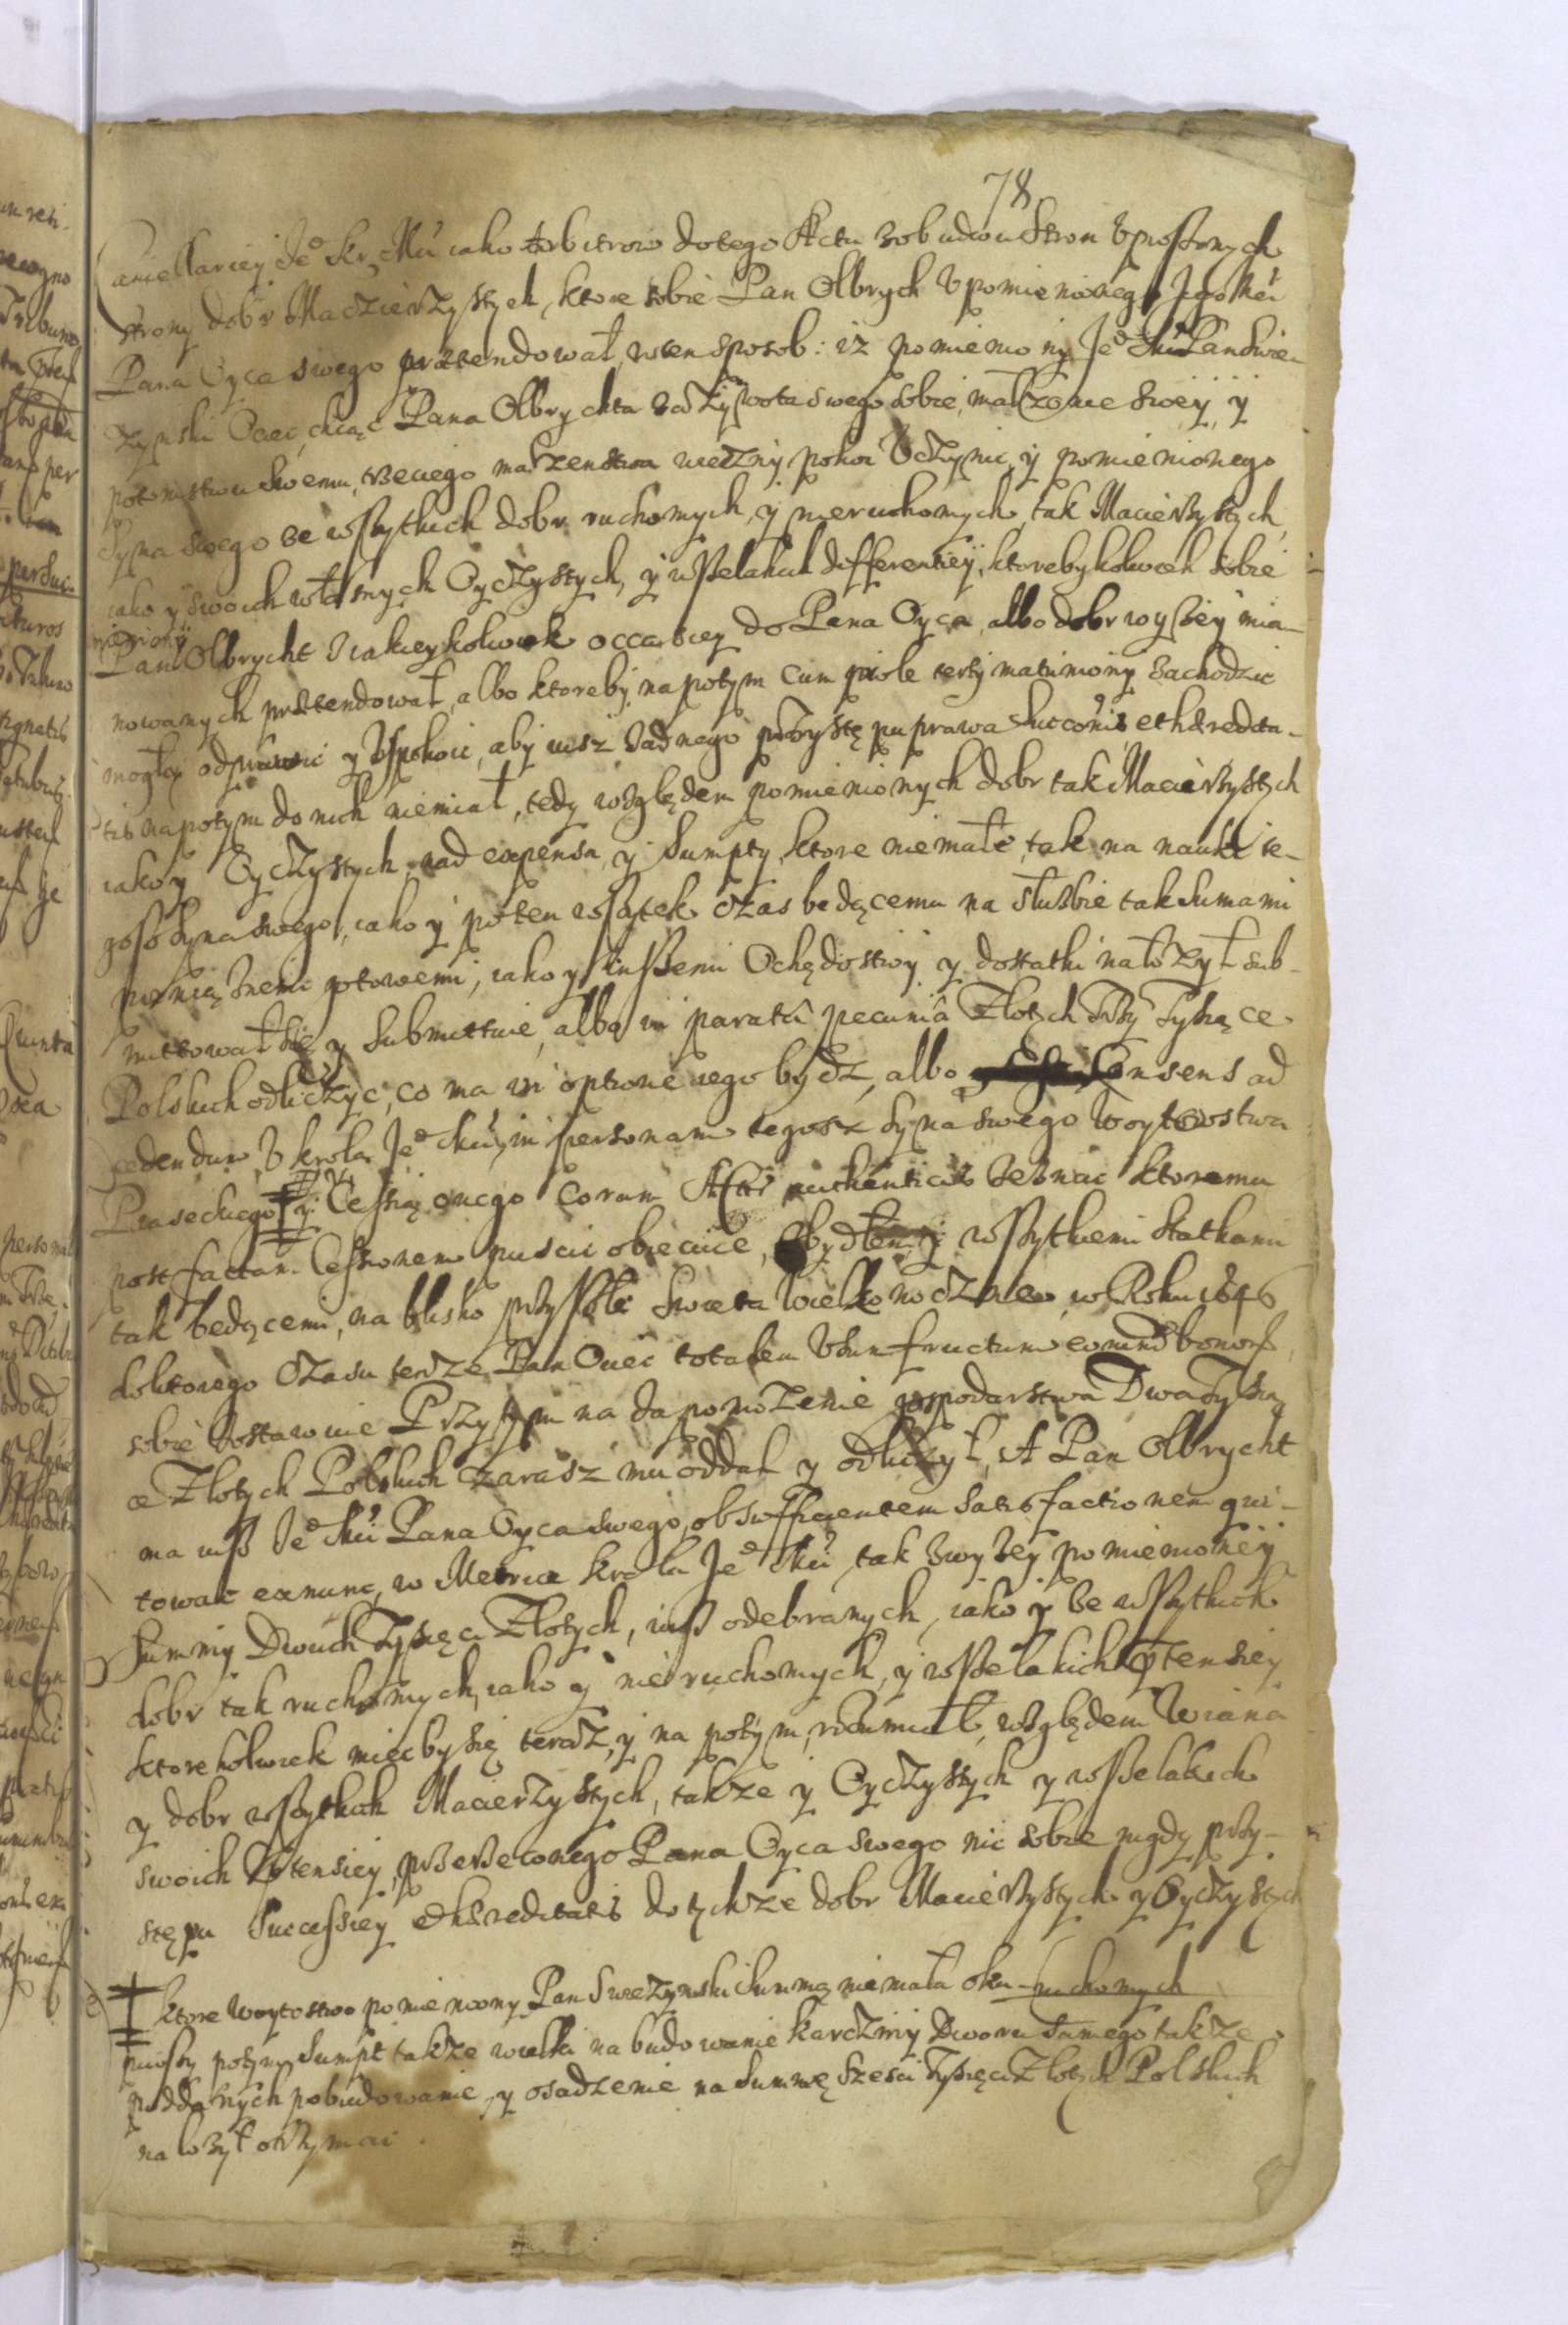 78
Cancellariey Je° Kr. Mci iako Arbitrow do tego Actu z obudwu Stron Vproszonych
strony dobr Macziersystych, ktore sobie Pan Olbrych V pomienionego Jego Mci
Pana Oyca swego prætendował, w ten sposob: iz pomieniony Je° Mć Pan Swie-
zynski Ociec, chcąc Pana Olbrychta za żywota swego sobie, małżonce swey, y
potomstwu swemu, trzeciego małżenstwa wieczny pokoi Vczynic, y pomienionego
Syna swego ze wszytkich dobr ruchomych, y nieruchomych, tak Macierzystych
iako y swoich własnych Oyczystych, y wszelakich differentiey, ktorebykolwiek sobie
mieniony
Pan Olbrycht z iakieykolwiek occasiey do Pana Oyca, albo dobr wyzey mia-
nowanych prætendował, albo ktoreby napotym cum prole tertij matrimonij zachodzic
mogły odprawic y Vspokoic, aby iusz żadnego przystępu prawa Succõnis et hæredita-
tis napotym do nich niemiał, tedy względem pomienionych dobr tak Macierzystych
iako y Oyczystych, nad expensa, y sumpty, ktore niemałe, tak na nauki te-
gosz Syna swego, iako y po ten wszytek czas będącemu na służbie tak sumami
pieniężnemi gotowemi, iako y inszemi Ochędostwy y dostatki nałożył sub-
mittował się y submittuie, albo in parata pecunia Złotych Trzy Tysiące
Polskich odliczyc, co ma in optione iego bydz, albo Consens ad
cedendum V krola Je° Mci, in personam tegosz Syna swego Woytowstwa
Piaseckiego ‡ y Cessią onego coram Actis authenticis zeznac ktoremu
post factam Cessionem puscic obiecuie, z bydłem, y wszytkiemi statkami
tak będącemi, na blisko przyszłe Swieta Wielkonoczne, w Roku 1646
doktorego Czasu terdze Pan Ociec totalem Vsumfructum eorund bonorum
sobie zostawuie Przytym na zapomozenie gospodarstwa Dwa Tysią
ce Złotych Polskich zarasz mu oddał y odliczył, A Pan Olbrycht
ma iusz Je° Mci Pana Oyca swego, ob sufficientem satisfactionem qui-
towac exnunc, w Metrice krola Je° Mci, tak z wyzey pomienioney
Summy Dwuch Tysięci Złotych, iusz odebranych, iako y ze wszytkich
dobr tak ruchomych, iako y nieruchomych, y wszelakich prtensiey
ktorekolwiek miecby się teraz, y na potym, rozumiał, względem Wiana
y dobr wszytkich Macierzystych, takze y Oyczystych y wszelakich
swoich prtensiey, przerzeczonego Pana Oyca swego nic sobie nigdy przy-
stępu Successiey et hæreditatis do tychze dobr Macierzystych y Oyczystych
‡ ktore Woytostwo pomieniony Pan Swiezynski Summą niemała oku- ruchomych
piwszy potym Sumpt takze wielki na budowanie karczmy Dworu samego takze
poddanych pobudowanie, y osadzenie na Summę Szesci Tysięci Złotych Polskich
nalozył otrzymac.